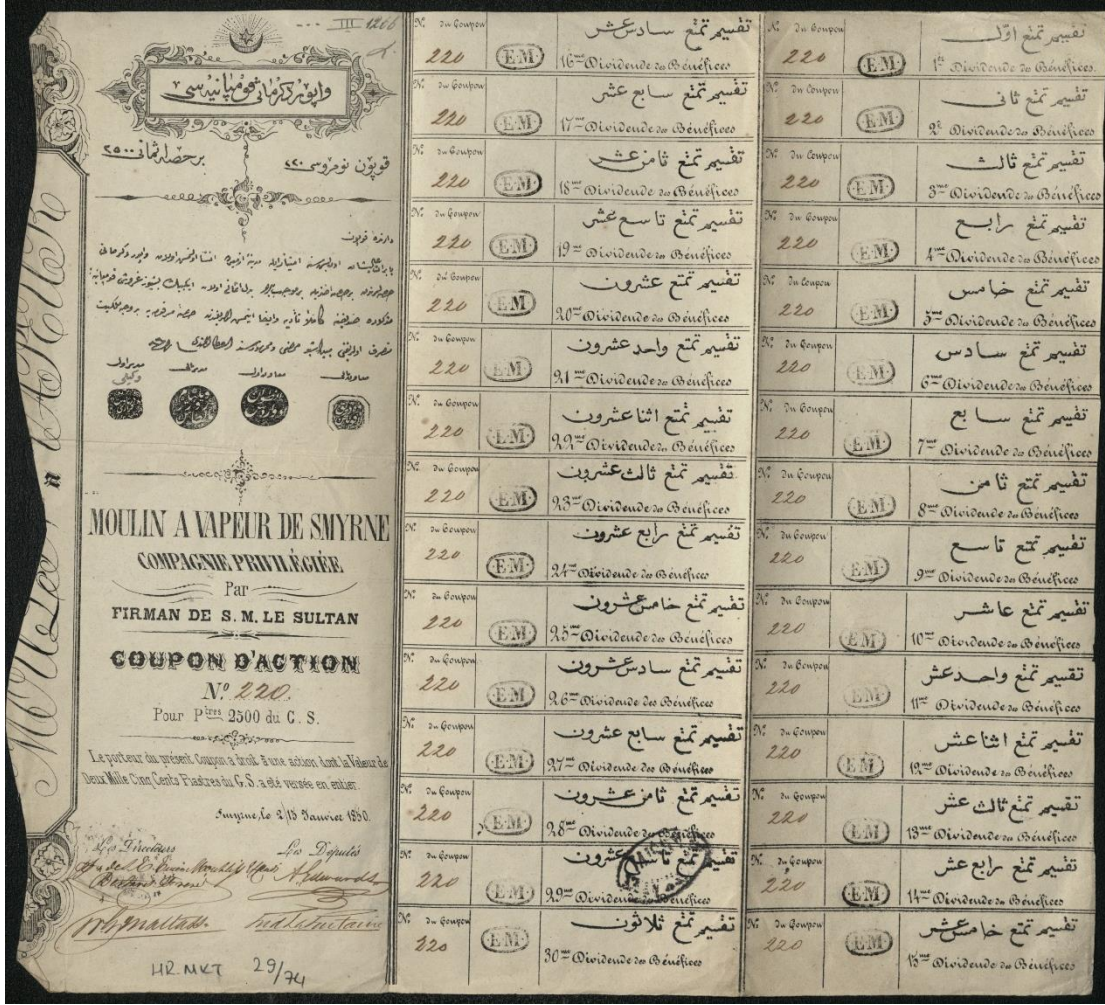 III 1266
واپور دكرمانی قومپانیه سی
بر حصه اثمانی ٢٥٠٠
قوپون نومروسی ٢٢٠
MOULIN A VAPEUR DE SMYRNE
COMPAGNIE PRIVILÉGIÉE
Par
FIRMAN DE S. M. LE SULTAN
COUPON D'ACTION
Nº 220.
Pour Ptres 2500 du G. S.
Le porteur du présent Coupon a droit à une action dont la Valeur de
Deux Mille Cinq Cents Piastres du G. S. a été versée en entier.
Smyrne, le 2/15 Janvier 1850.
Les Directeurs
Les Députés
A. Edwards
HR. MKT 29/74
Nº du Coupon
220
E.M
تقسیم تمتع سادس عشر
16me Dividende des Bénéfices
Nº du Coupon
220
E.M
تقسیم تمتع سابع عشر
17me Dividende des Bénéfices
Nº du Coupon
220
E.M
تقسیم تمتع ثامن عشر
18me Dividende des Bénéfices
Nº du Coupon
220
E.M
تقسیم تمتع تاسع عشر
19me Dividende des Bénéfices
Nº du Coupon
220
E.M
تقسیم تمتع عشرون
20me Dividende des Bénéfices
Nº du Coupon
220
E.M
تقسیم تمتع واحد عشرون
21me Dividende des Bénéfices
Nº du Coupon
220
E.M
تقسیم تمتع اثنا عشرون
22me Dividende des Bénéfices
Nº du Coupon
220
E.M
تقسیم تمتع ثالث عشرون
23me Dividende des Bénéfices
Nº du Coupon
220
E.M
تقسیم تمتع رابع عشرون
24me Dividende des Bénéfices
Nº du Coupon
220
E.M
تقسیم تمتع خامس عشرون
25me Dividende des Bénéfices
Nº du Coupon
220
E.M
تقسیم تمتع سادس عشرون
26me Dividende des Bénéfices
Nº du Coupon
220
E.M
تقسیم تمتع سابع عشرون
27me Dividende des Bénéfices
Nº du Coupon
220
E.M
تقسیم تمتع ثامن عشرون
28me Dividende des Bénéfices
Nº du Coupon
220
E.M
تقسیم تمتع تاسع عشرون
29me Dividende des Bénéfices
Nº du Coupon
220
E.M
تقسیم تمتع ثلاثون
30me Dividende des Bénéfices
Nº du Coupon
220
E.M
تقسیم تمتع اول
1er Dividende des Bénéfices
Nº du Coupon
220
E.M
تقسیم تمتع ثانی
2e Dividende des Bénéfices
Nº du Coupon
220
E.M
تقسیم تمتع ثالث
3me Dividende des Bénéfices
Nº du Coupon
220
E.M
تقسیم تمتع رابع
4me Dividende des Bénéfices
Nº du Coupon
220
E.M
تقسیم تمتع خامس
5me Dividende des Bénéfices
Nº du Coupon
220
E.M
تقسیم تمتع سادس
6me Dividende des Bénéfices
Nº du Coupon
220
E.M
تقسیم تمتع سابع
7me Dividende des Bénéfices
Nº du Coupon
220
E.M
تقسیم تمتع ثامن
8me Dividende des Bénéfices
Nº du Coupon
220
E.M
تقسیم تمتع تاسع
9me Dividende des Bénéfices
Nº du Coupon
220
E.M
تقسیم تمتع عاشر
10me Dividende des Bénéfices
Nº du Coupon
220
E.M
تقسیم تمتع واحد عشر
11me Dividende des Bénéfices
Nº du Coupon
220
E.M
تقسیم تمتع اثنا عشر
12me Dividende des Bénéfices
Nº du Coupon
220
E.M
تقسیم تمتع ثالث عشر
13me Dividende des Bénéfices
Nº du Coupon
220
E.M
تقسیم تمتع رابع عشر
14me Dividende des Bénéfices
Nº du Coupon
220
E.M
تقسیم تمتع خامس عشر
15me Dividende des Bénéfices